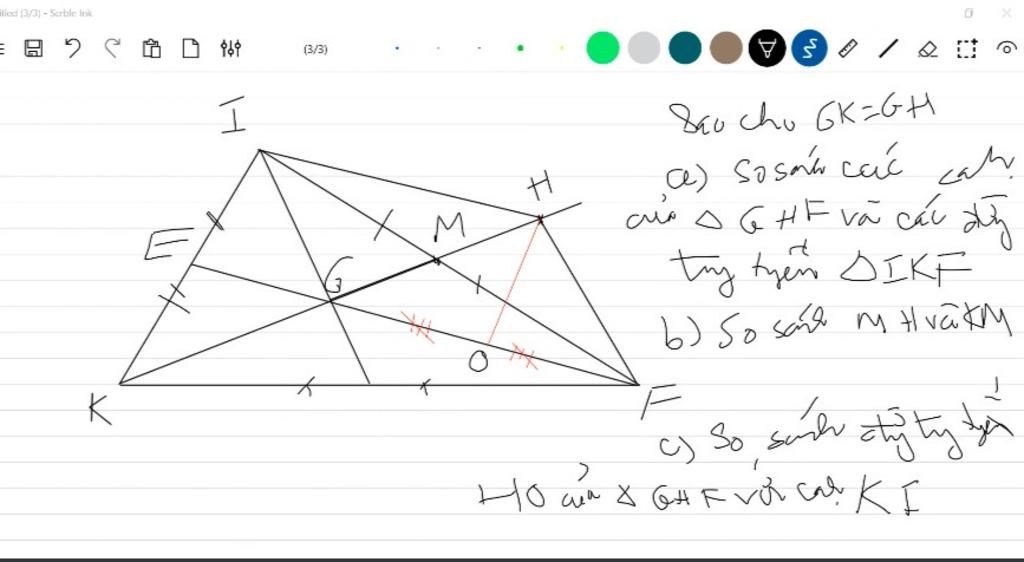 (3/3) - Scrble Ink
(3/3)
I
H
E
M
G
O
K
F
Sao cho GK=GH
a) So sánh các cạnh
của Δ GHF và các đg
trg tuyến ΔIKF
b) So sánh MH và KM
c) So sánh đg trg tuyến
HO của Δ GHF với cạnh KI